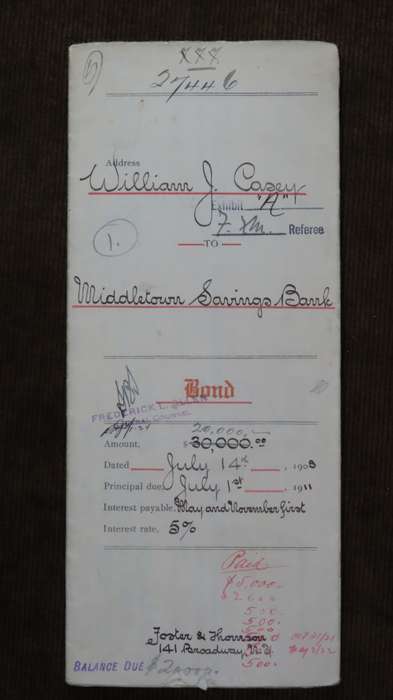 5
888
27446
Address
William J. Casey
Exhibit "A"
1.
Referee
TO
Middletown Savings Bank
Bond
FREDERICK L. ALLEN
GENERAL COUNSEL
20,000.—
Amount, $30,000.00
Dated July 14th, 1908
Principal due, July 1st, 1911
Interest payable, May and November first
Interest rate, 5%
Paid
$5,000.-
500.-
500.-
500
Foster & Thomson
141 Broadway, N.Y.
500.-
BALANCE DUE $2